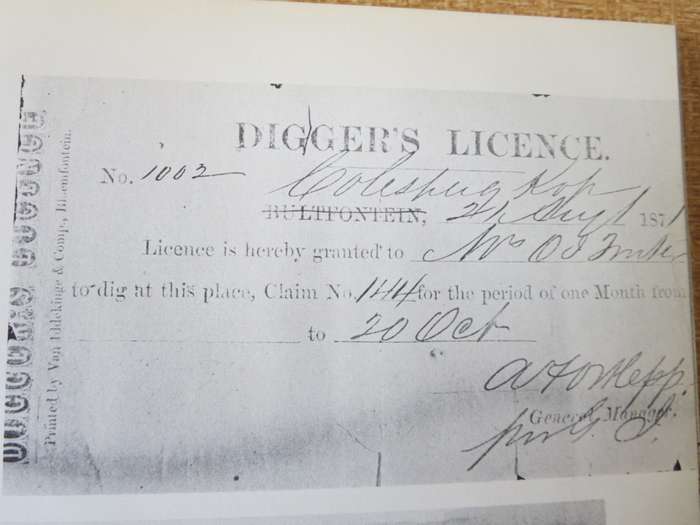 DIGGER'S LICENCE.
No. 1002
Colesberg Kop
BULTFONTEIN, 21 1871
Licence is hereby granted to Mr
to dig at this place, Claim No. 144 for the period of one Month from
to 20 Oct
General Manager.
Printed by Van Iddekinge & Comp., Bloemfontein.